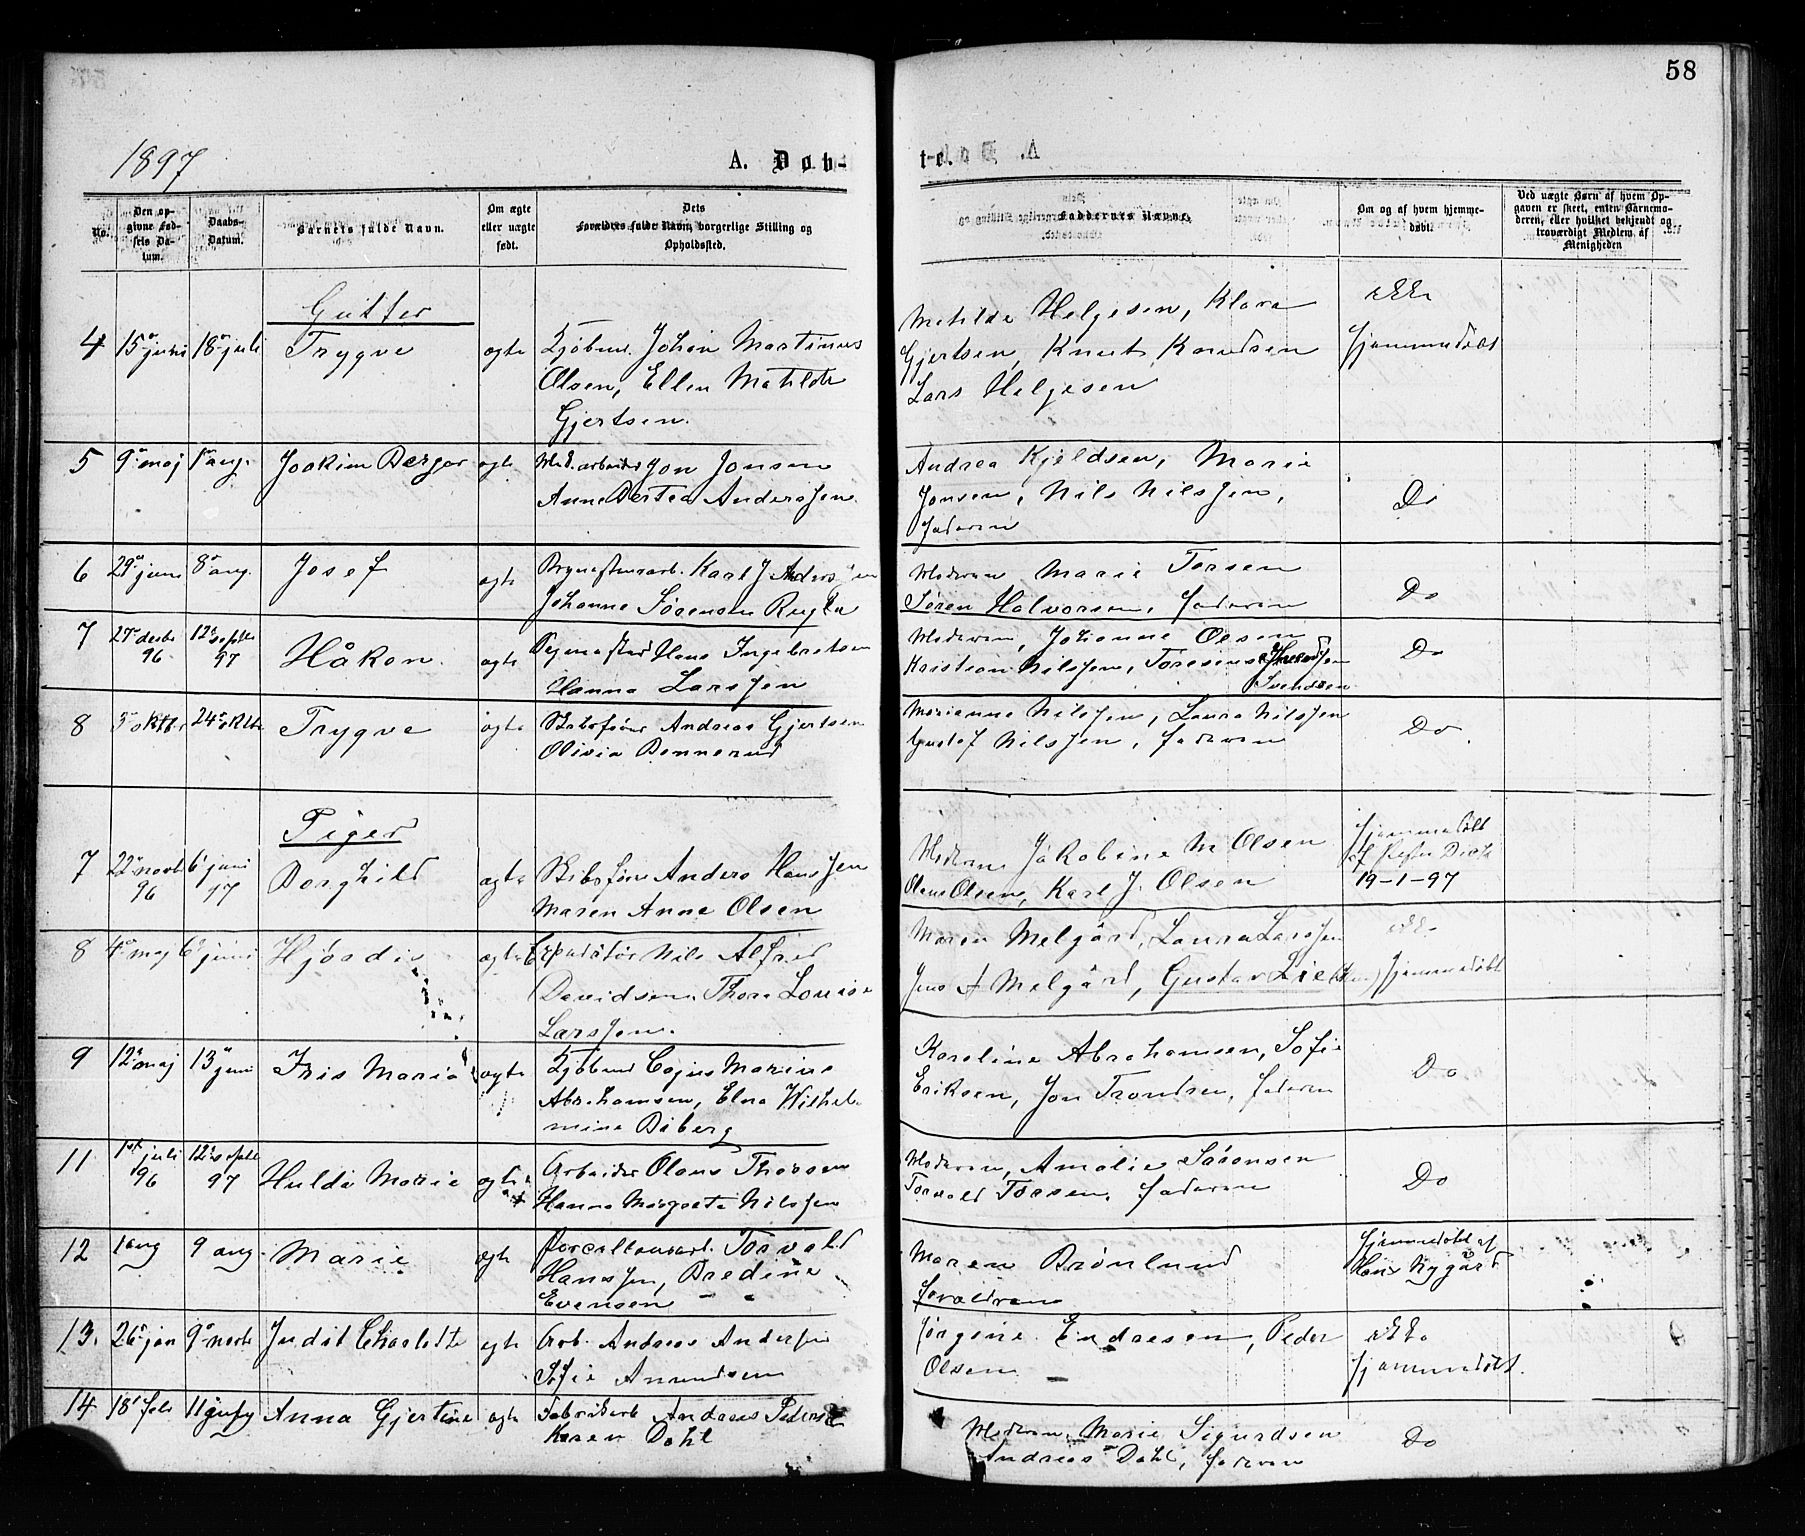 58
1897
A. Døb-
te.
No.
Den op-
givne Fød-
sels Da-
tum.
Daabs-
Datum.
Barnets fulde Navn.
Om ægte
eller uægte
født.
Dets
Forældres fulde Navn, borgerlige Stilling og
Opholdssted.
Faddernes Navne.
Om og af hvem hjemme-
døbt.
Ved uægte Børn af hvem Op-
gaven er skeet, enten Barnemo-
deren, eller hvilket bekjendt og
troværdigt Medlem af
Menigheden
Gutter
4 15 juni 18 juli Trygve ægte Kjøbm. Johan Martinus
Olsen, Ellen Matilde
Gjertsen.
Matilde Helgesen, Klara
Gjertsen, Knut Knudsen
Lars Helgesen
ikke
hjemmedøbt
5 9 maj 1 aug. Joakim Berger ægte arbeider Jon Jonsen
Anne Bertea Anderssen
Andrea Kjeldsen, Marie
Jonsen, Nils Nilssen,
faderen
Do
6 29 juni 8 aug. Josef ægte Karl J Anderssen
Johanne Sørensen
Moderen Marie Torsen
Søren Halvorsen, faderen
Do
7 27 decbr 96 12 septbr 97 Håkon ægte Hans Ingebretsen
Hanna Larssen
Moderen, Johanne Olsen
Kristian Nilssen,
Svendsen
Do
8 3 oktbr 24 oktbr Trygve ægte Skibsfører Andreas Gjertsen
Olivia Bennerud
Marianne Nilssen, Laura Nilssen
Gustaf Nilssen, faderen
Do
Piger
7 22 novb 96 6 juni 97 Borghild ægte Skibsfører Anders Hanssen
Maren Anne Olsen
Moderen Jakobine M Olsen
Olaus Olsen, Karl J. Olsen
hjemmedøbt
af
19-1-97
8 4 maj 6 juni Hjørdis ægte Nils Alfred
Davidsen, Thora Louise
Larssen.
Maren Melgård, Laura Larssen
Jens A Melgård, Gustav Lie
ikke
hjemmedøbt
9 12 maj 13 juni Iris Maria ægte Kjøbmd Cajus Marius
Abrahamsen, Elna Wilhel-
mine Boberg
Karoline Abrahamsen, Sofie
Eriksen, Jon Trondsen, faderen
Do
11 1st juli 96 12 septbr 97 Hulda Marie ægte Arbeider Olaus Thorsen
Hanna Margrete Nilssen
Moderen, Amalie Sørensen
Torvald Torsen, faderen
Do
12 1 aug 9 aug Marie ægte Porcellænsarb. Torvald
Hanssen, Bredine
Evensen
Maren Brønlund
forældrene
hjemmedøbt af
Hans Nygård
13. 26 jan 9 novb Judit Charlotte ægte Arb. Andreas Anderssen
Sofie Amundsen
Jørgine Endresen, Peder
Olsen
ikke
hjemmedøbt.
14 18 feb 11 Anna Gjertine ægte Fabrikarb Andreas Pedersen
Karen Dahl
Moderen, Marie Sigurdsen
Andreas Dahl, faderen
Do